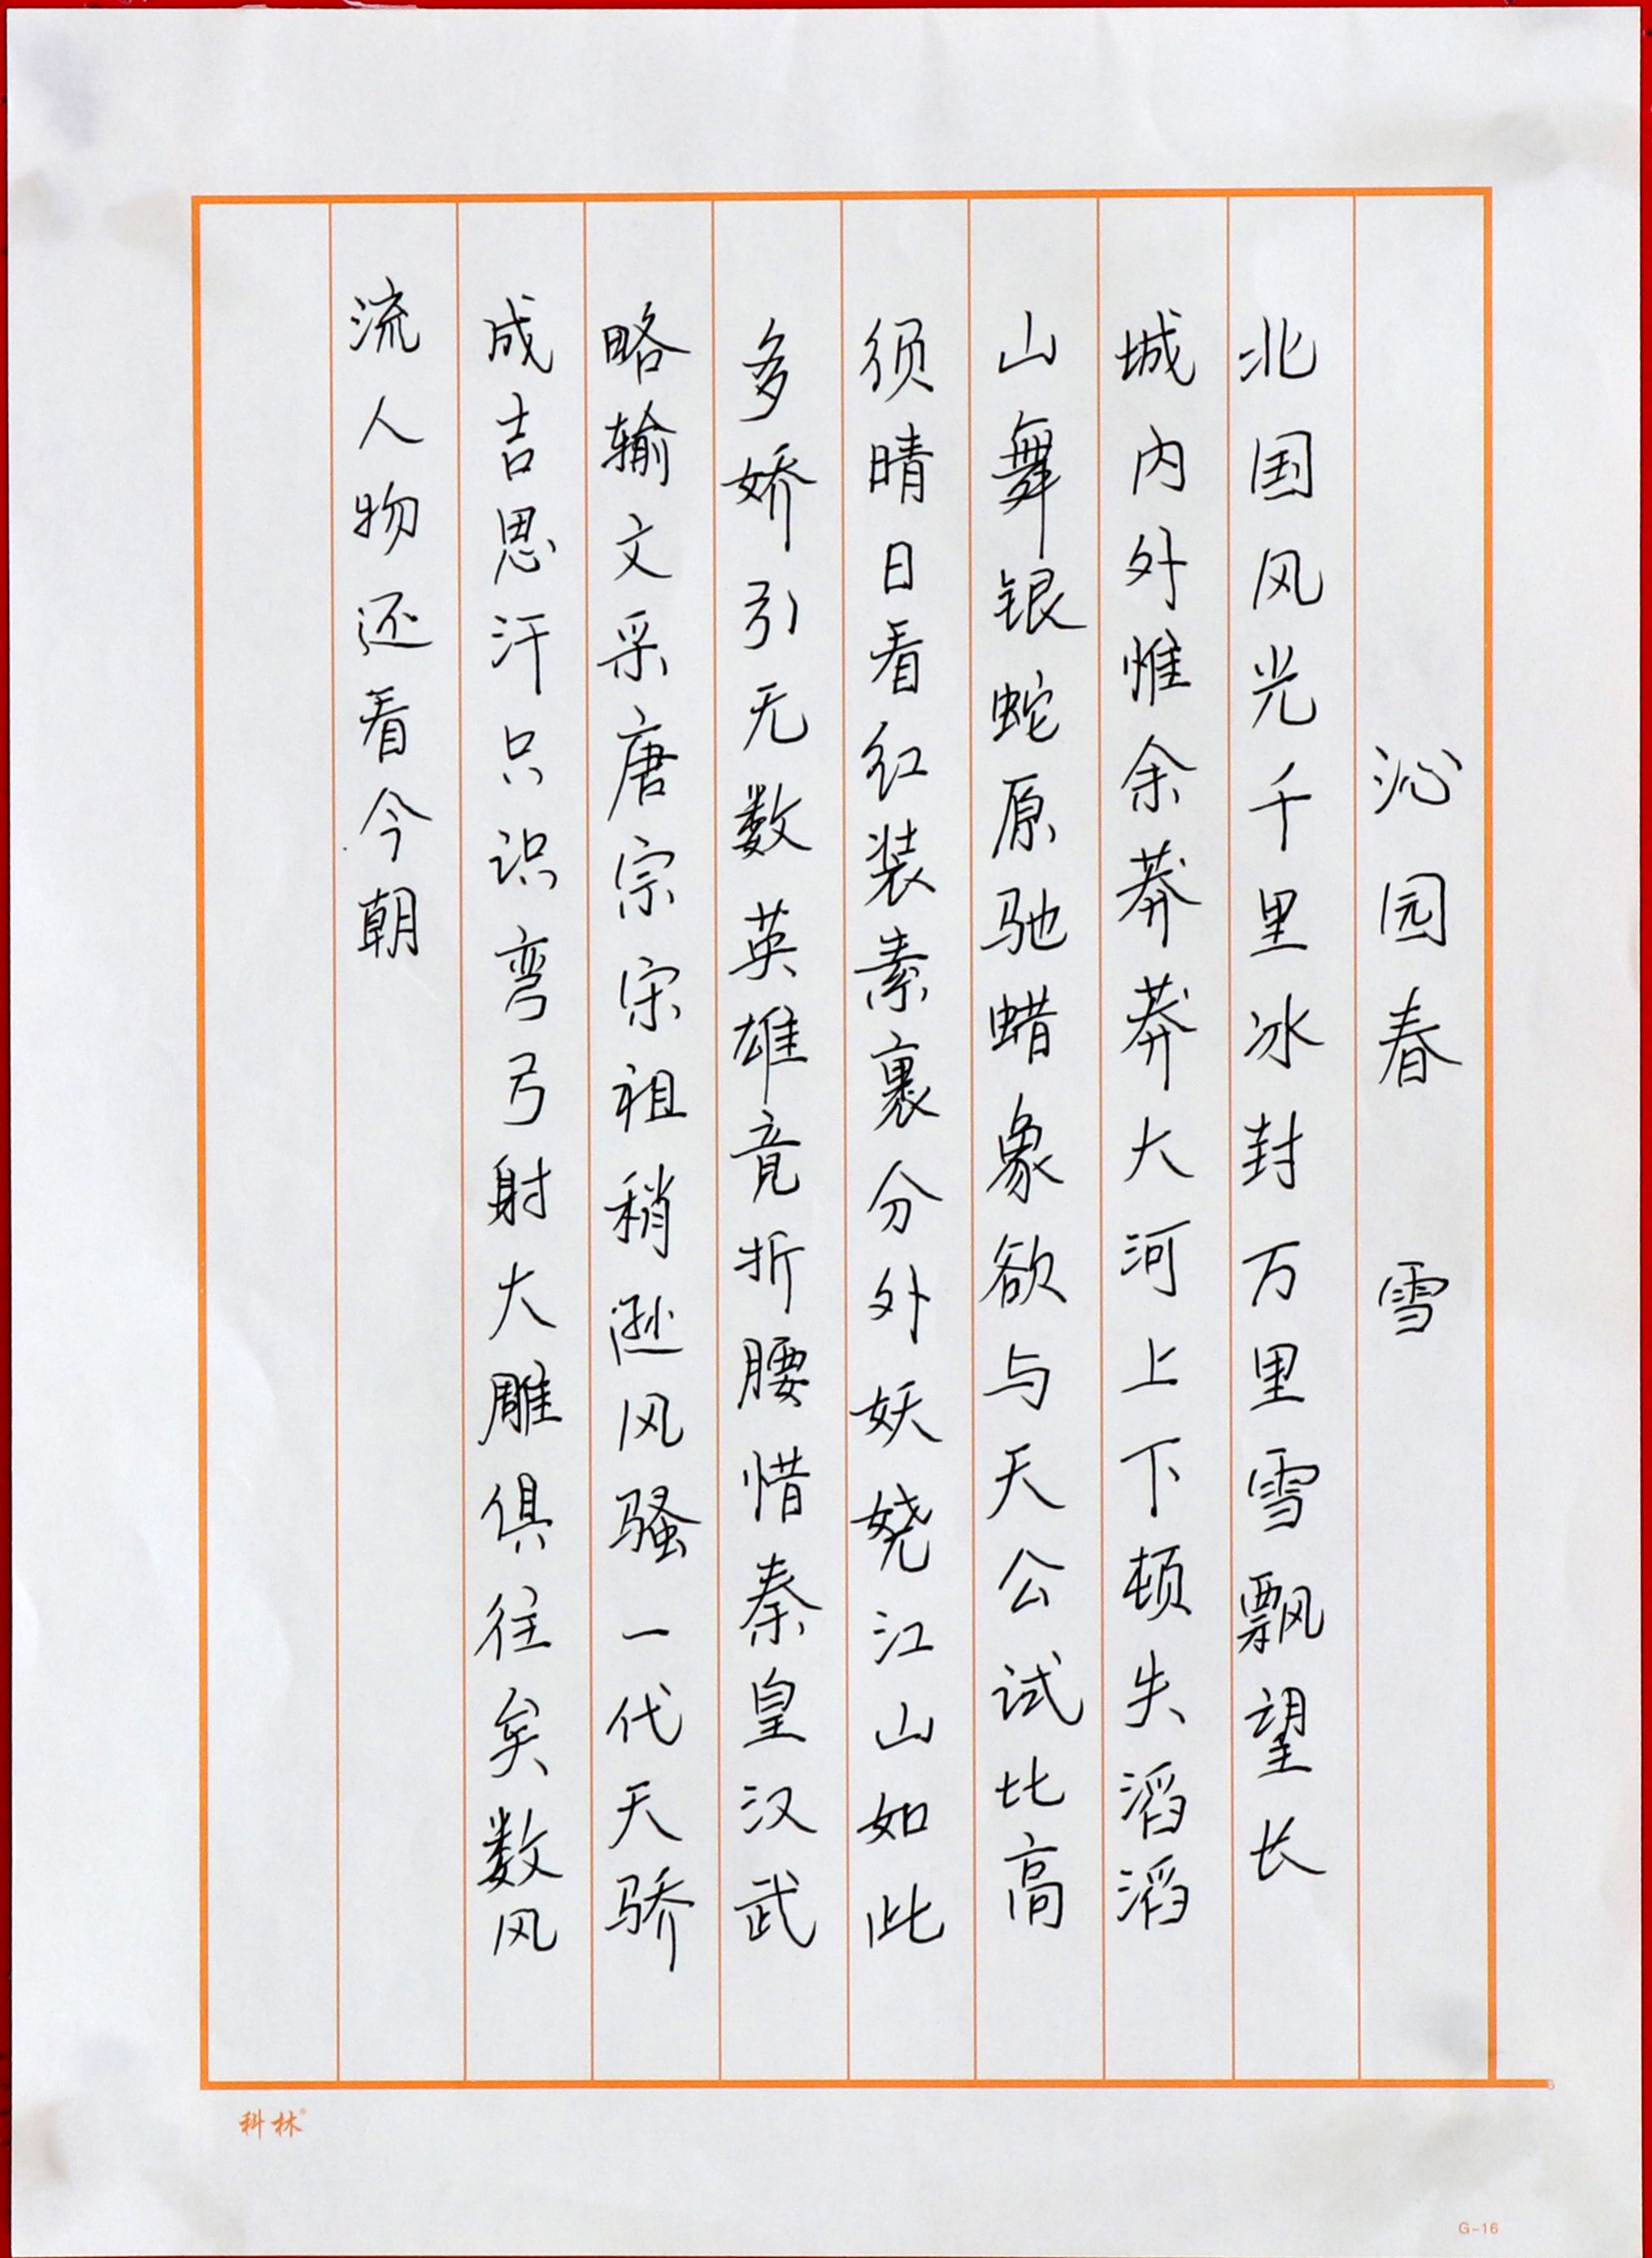 沁园春 雪
北国风光千里冰封万里雪飘望长
城内外惟余莽莽大河上下顿失滔滔
山舞银蛇原驰蜡象欲与天公试比高
须晴日看红装素裹分外妖娆江山如此
多娇引无数英雄竟折腰惜秦皇汉武
略输文采唐宗宋祖稍逊风骚一代天骄
成吉思汗只识弯弓射大雕俱往矣数风
流人物还看今朝
科林®
G-16